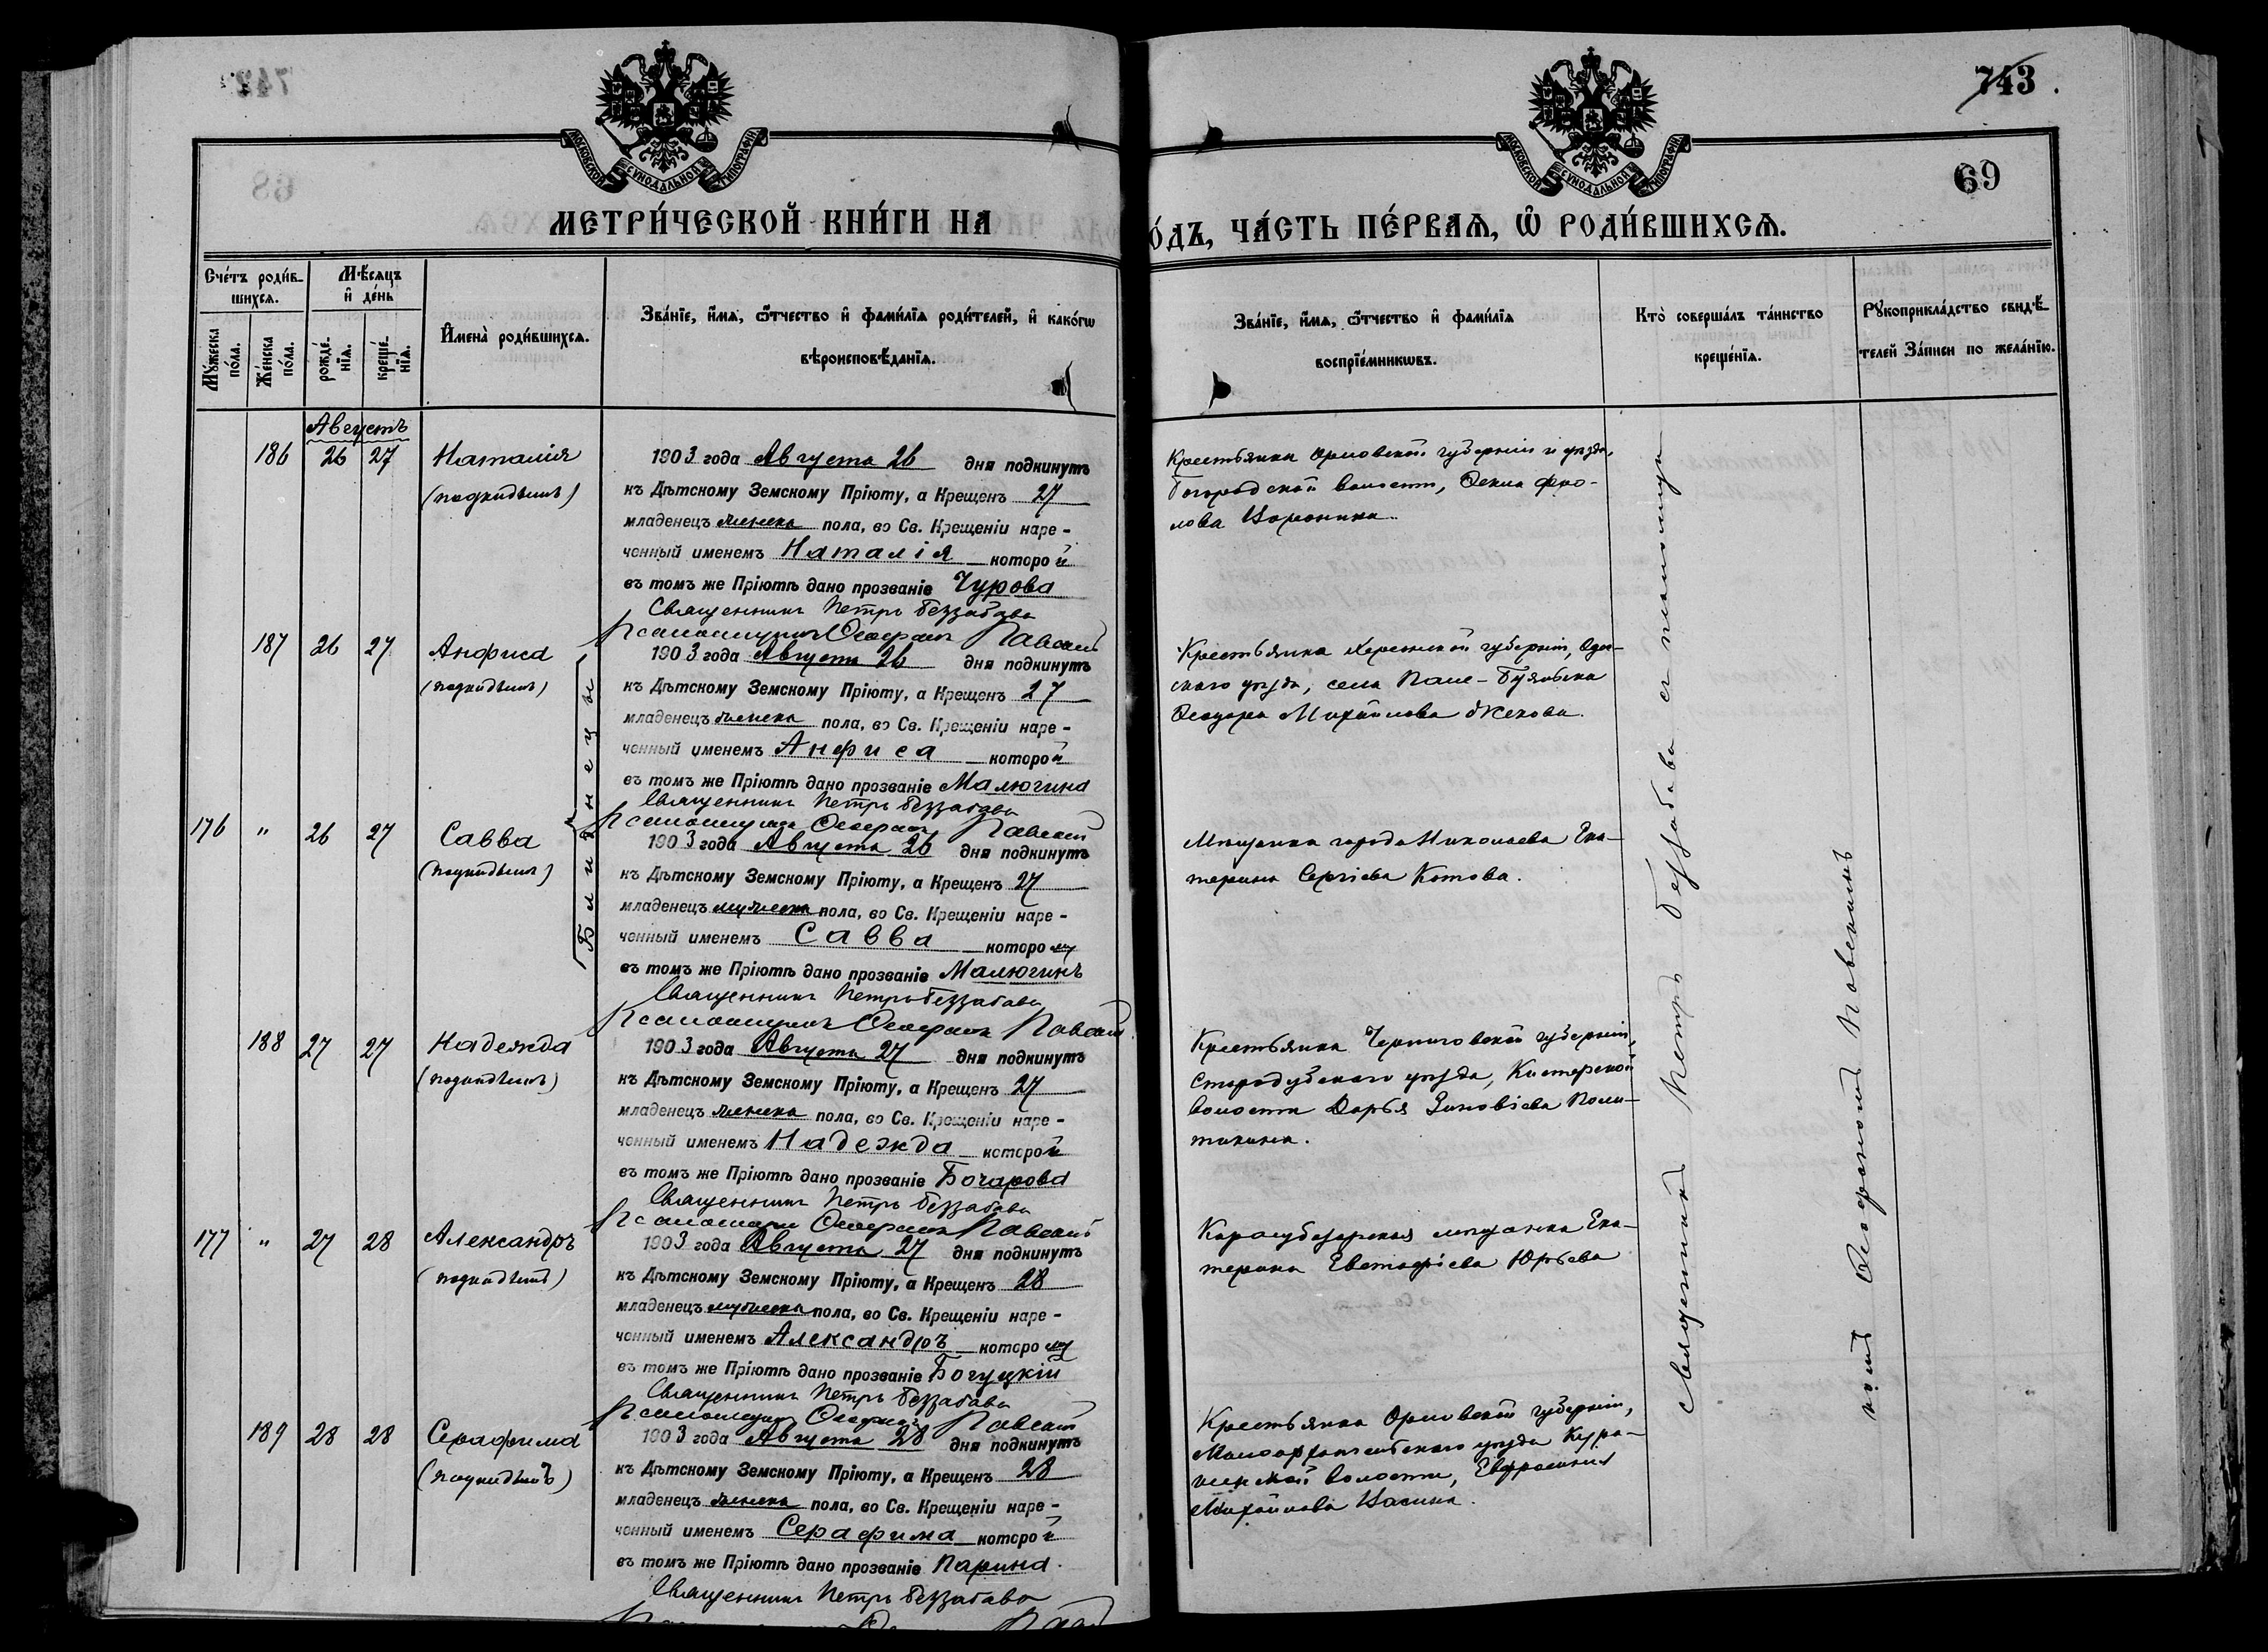 743
69
МОСКОВСКОЙ СУНОДАЛЬНОЙ ТИПОГРАФІИ
МОСКОВСКОЙ СУНОДАЛЬНОЙ ТИПОГРАФІИ
МЕТРИ́ЧЕСКОЙ КНИ́ГИ НА
О́ДЪ, ЧА́СТЬ ПЕ́РВАѦ, Ѽ РОДИ́ВШИХСѦ.
Сче́тъ роди́в-
шихсѧ.
Мѣ́сѧцъ
и҆ де́нь
Мꙋ́жеска по́ла.
Же́нска по́ла.
рожде́-
нїѧ.
креще́-
нїѧ.
И҆мена̀ роди́вшихсѧ.
Зва́нїе, и҆́мѧ, ѻ҆́тчество и҆ фами́лїѧ роди́телей, и҆ како́гѡ
вѣроисповѣ́данїѧ.
Зва́нїе, и҆́мѧ, ѻ҆́тчество и҆ фами́лїѧ
воспрїе́мникѡвъ.
Кто̀ соверша́лъ та́инство
креще́нїѧ.
Рꙋкоприкла́дство свидѣ́-
телей За́писи по жела́нїю.
Августъ
186 26 27 Наталія
(подкидышъ)
1903 года Августа 26 дня подкинутъ
къ Дѣтскому Земскому Пріюту, а Крещенъ 27
младенецъ женска пола, во Св. Крещеніи наре-
ченный именемъ Наталія которой
въ томъ же Пріютѣ дано прозваніе Чурова
Священникъ Петръ Беззабава
Псаломщикъ
Крестьянка Орловской губерніи и уѣзда,
Богородской волости, Фро-
лова
187 26 27 Анфиса
(подкидышъ)
Близнецы
1903 года Августа 26 дня подкинутъ
къ Дѣтскому Земскому Пріюту, а Крещенъ 27
младенецъ женска пола, во Св. Крещеніи наре-
ченный именемъ Анфиса которой
въ томъ же Пріютѣ дано прозваніе Малюгина
Священникъ Петръ Беззабава
Псаломщикъ
Крестьянка Херсонской губерніи, Одес-
скаго уѣзда, села
Михайлова
176 " 26 27 Савва
(подкидышъ)
1903 года Августа 26 дня подкинутъ
къ Дѣтскому Земскому Пріюту, а Крещенъ 27
младенецъ мужеска пола, во Св. Крещеніи наре-
ченный именемъ Савва которому
въ томъ же Пріютѣ дано прозваніе Малюгинъ
Священникъ Петръ Беззабава
Псаломщикъ
Мѣщанка города Николаева Ека-
терина Сергіева Котова.
188 27 27 Надежда
(подкидышъ)
1903 года Августа 27 дня подкинутъ
къ Дѣтскому Земскому Пріюту, а Крещенъ 27
младенецъ женска пола, во Св. Крещеніи наре-
ченный именемъ Надежда которой
въ томъ же Пріютѣ дано прозваніе Бочарова
Священникъ Петръ Беззабава
Псаломщикъ
Крестьянка Черниговской губерніи,
Стародубскаго уѣзда, Кистерской
волости Дарья Зиновіева
177 " 27 28 Александръ
(подкидышъ)
1903 года Августа 27 дня подкинутъ
къ Дѣтскому Земскому Пріюту, а Крещенъ 28
младенецъ мужеска пола, во Св. Крещеніи наре-
ченный именемъ Александръ которому
въ томъ же Пріютѣ дано прозваніе Богуцкій
Священникъ Петръ Беззабава
Псаломщикъ
Карасубазарская мѣщанка Ека-
терина Евстафіева Юрьева
189 28 28 Серафима
(подкидышъ)
1903 года Августа 28 дня подкинутъ
къ Дѣтскому Земскому Пріюту, а Крещенъ 28
младенецъ женска пола, во Св. Крещеніи наре-
ченный именемъ Серафима которой
въ томъ же Пріютѣ дано прозваніе Парина.
Священникъ Петръ Беззабава
Крестьянка Орловской губерніи,
Малоархангельскаго уѣзда
волости, Евфросинія
Михайлова
Священникъ Петръ Беззабава съ псаломщи-
комъ